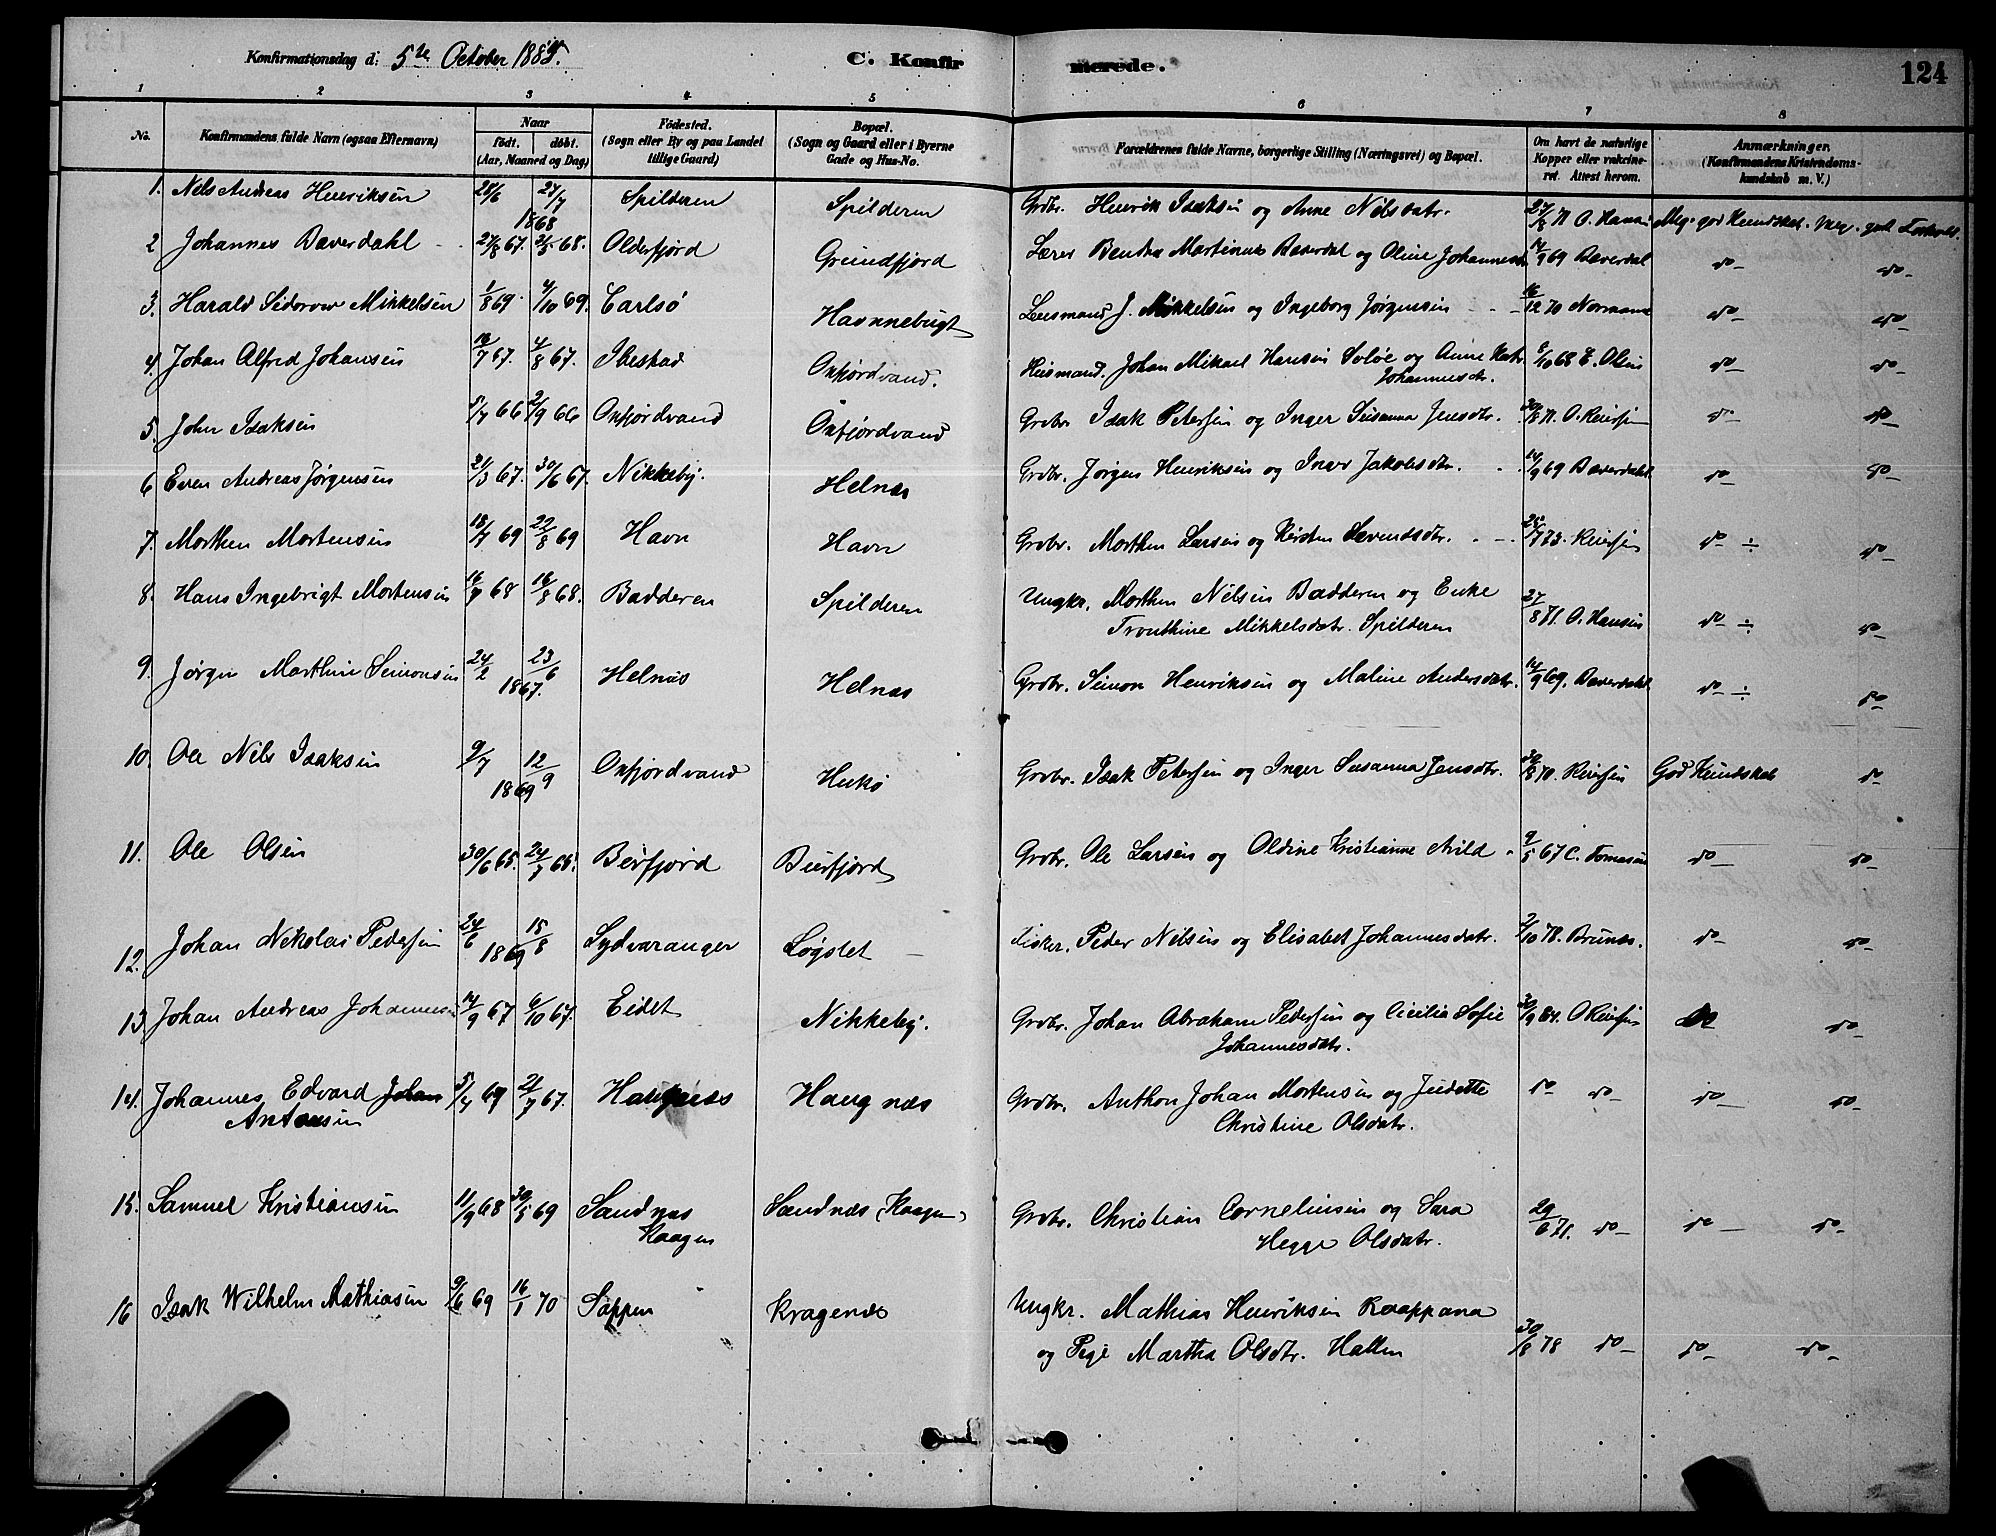 Konfirmationsdag d: 5te October 1885.
C. Konfirmerede.
124
1 2 3 4 5 6 7 8
No.
Konfirmandens fulde Navn (ogsaa Efternavn)
Naar
født. døbt.
(Aar, Maaned og Dag)
Fødested.
(Sogn eller By og paa Landet tillige Gaard)
Bopæl.
(Sogn og Gaard eller i Byerne Gade og Hus-No.
Forældrenes fulde Navne, borgerlige Stilling (Næringsvei) og Bopæl.
Om havt de naturlige Kopper eller vakcineret. Attest herom.
Anmærkninger.
(Konfirmandens Kristendomskundskab m. V.)
1. Nels Andreas Henriksen 28/6 24/7 1868 Spilderen Spilderen Grdbr. Henrik Isaksen og Anne Nilsdatr. 27/8 71 O. Hansen Meg. god Kundskab. Meg. god Forhold.
2 Johannes Bæverdahl 27/8 67. 2/5 68. Olderfjord Grundfjord Lærer Bendix Martinus Bæverdal og Oline Johannesdtr 14/9 69 Bæverdal do do
3. Harald Sidorow Mikkelsen 1/8 69. 4/10 69. Carlsö Havnnebugt Leiesmand J. Mikkelsen og Ingeborg Jørgensen 16/12 70 Normann do do
4. Johan Alfred Johansen 16/7 67. 4/8 67. Ibestad Oxfjordvand. Husmand. Johan Mikael Hansen Soløe og Anne Katr. Johannesdtr. 8/10 68 E. Olsen do do
5. John Isaksen 5/7 66 2/9 66 Oxfjordvand Oxfjordvand Grdbr. Isak Petersen og Inger Susanna Jensdtr. 30/8 71. O. Reiersen do do
6 Even Andreas Jørgensen 21/3 67. 30/6 67. Nikkeby. Helnæs Grdbr. Jørgen Henriksen og Inger Jakobsdtr. 14/9 69 Bæverdahl do do
7. Morthen Mortensen 18/7 69 22/8 69 Havn Havn Grdbr. Morthen Larsen og Kirsten Sørendsdtr. 28/7 73. Reiersen do ÷ do
8. Hans Ingebrigt Mortensen 16/7 68 16/8 68. Badderen Spilderen Ungkr. Morthen Nilsen Badderen og Enke Tronthine Mikkelsdatr. Spilderen 27/8 71. O. Hansen do ÷ do
9. Jørgen Morthin Simonsen 24/2 23/6 1867. Helnæs Helnæs Grdbr. Simon Henriksen og Maline Andersdatr. 14/9 69. Bæverdahl do ÷ do
10. Ole Nils Isaksen 9/7 12/9 1869 Oxfjordvand Hukö Grdbr. Isak Petersen og Inger Susanna Jensdtr. 30/8 70. Reiersen God Kundskab do
11. Ole Olsen 30/6 65. 24/7 65. Burfjord Burfjord Grdbr. Ole Larsen og Oldine Kristianne Avild 9/5 67 C. Tomasen do do
12. Johan Nikolai Pedersen 24/6 15/8 1869 Sydvaranger Løgslet Fisker. Peder Nilsen og Elisabet Johannesdatr. 2/10 78. Brunæs. do do
13. Johan Andreas Johannesen 14/9 67 6/10 67. Eidet Nikkeby. Grdbr. Johan Abraham Pedersen og Cicilia Sofie Johannesdatr. 30/9 84. O Reiersen do do
14. Johannes Edvard Johan Antonsen 5/4 69 2/7 67. Haugnæs Haugnæs Grdbr. Anthon Johan Mortensen og Judette Christine Olsdatr. do do do do
15. Samuel Kristiansen 11/9 68 30/5 69 Sandnæs Kaagen Sandnæs (Kaagen) Grdbr. Christian Corneliusen og Sara Hegge Olsdatr. 29/6 71. do do do
16 Isak Wilhelm Mathiasen 9/6 69 16/1 70 Sappen Kragenæs Ungkr. Mathias Henriksen Raappana og Pige Martha Olsdtr. Hallen 30/8 78 do do do